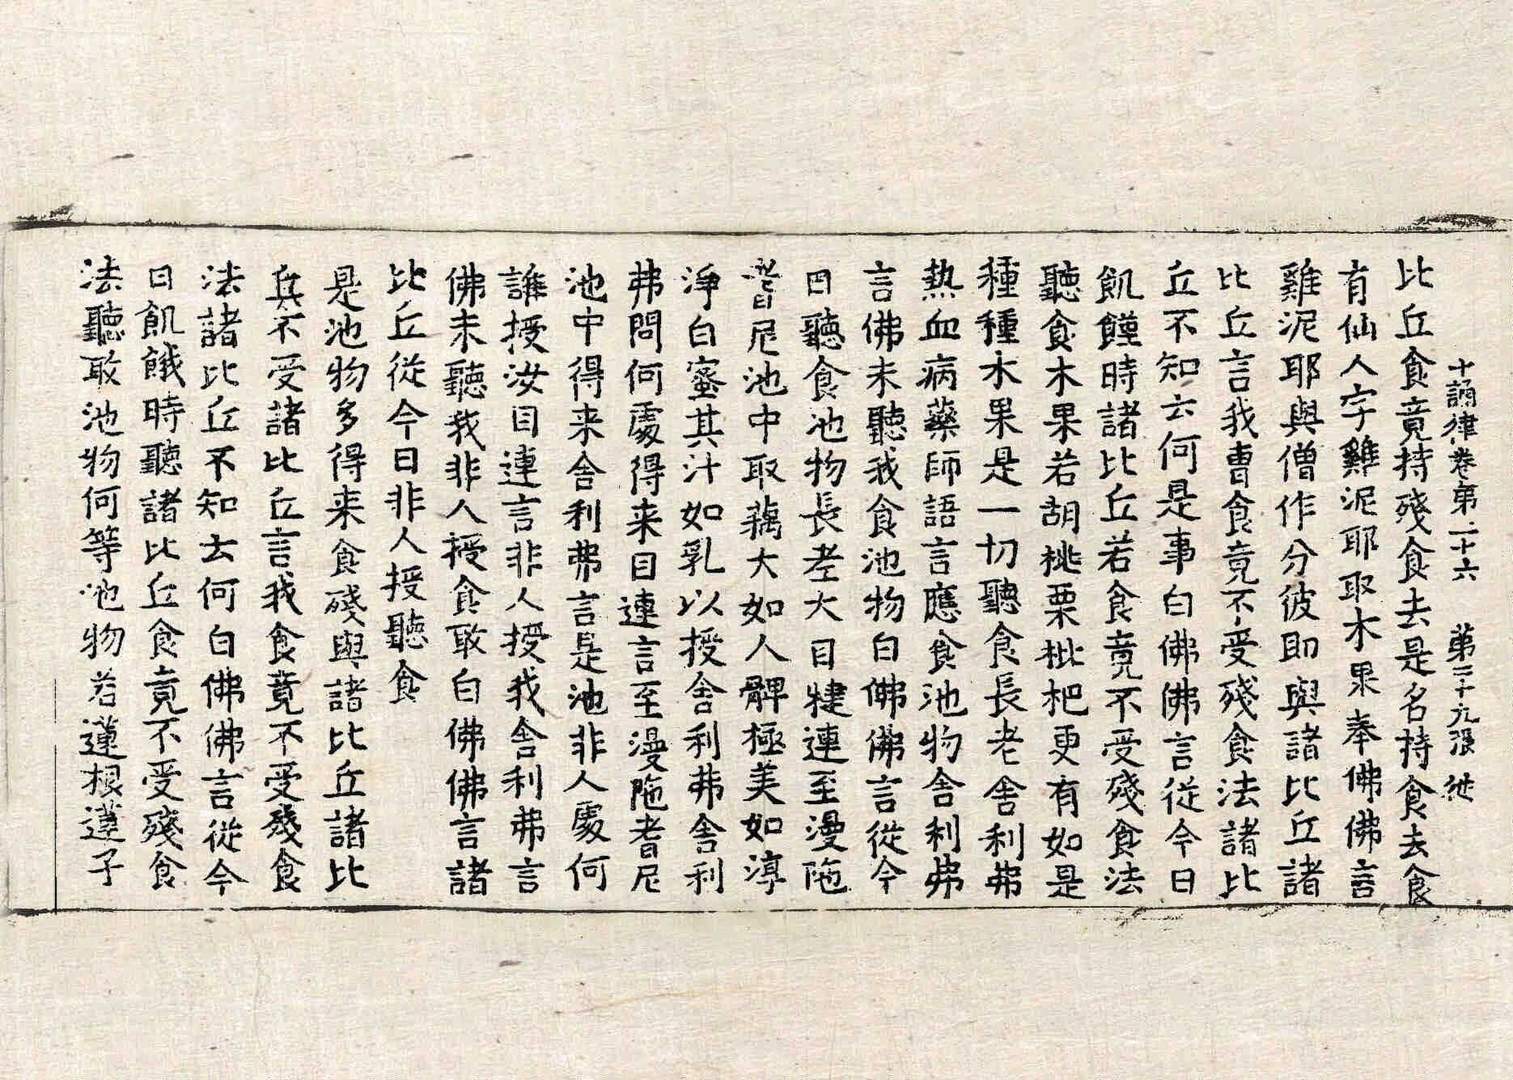 比丘食竟持殘食去是名持食去食
十誦律卷第二十六　第三十九張　从
有仙人字雞泥耶取木果奉佛佛言
雞泥耶與僧作分彼即與諸比丘諸
比丘言我曹食竟不受殘食法諸比
丘不知云何是事白佛佛言從今日
飢饉時諸比丘若食竟不受殘食法
聽食木果若胡桃栗枇杷更有如是
種種木果是一切聽食長老舍利弗
熱血病藥師語言應食池物舍利弗
言佛未聽我食池物白佛佛言從今
日聽食池物長老大目犍連至漫陁
耆尼池中取藕大如人髀極美如淳
淨白蜜其汁如乳以授舍利弗舍利
弗問何處得来目連言至漫陁耆尼
池中得来舍利弗言是池非人處何
誰授汝目連言非人授我舍利弗言
佛未聽我非人授食敢白佛佛言諸
比丘從今日非人授聽食
是池物多得来食殘與諸比丘諸比
兵不受諸比丘言我食竟不受殘食
法諸比丘不知云何白佛佛言從今
日飢餓時聽諸比丘食竟不受殘食
法聽敢池物何等池物若蓮根蓮子